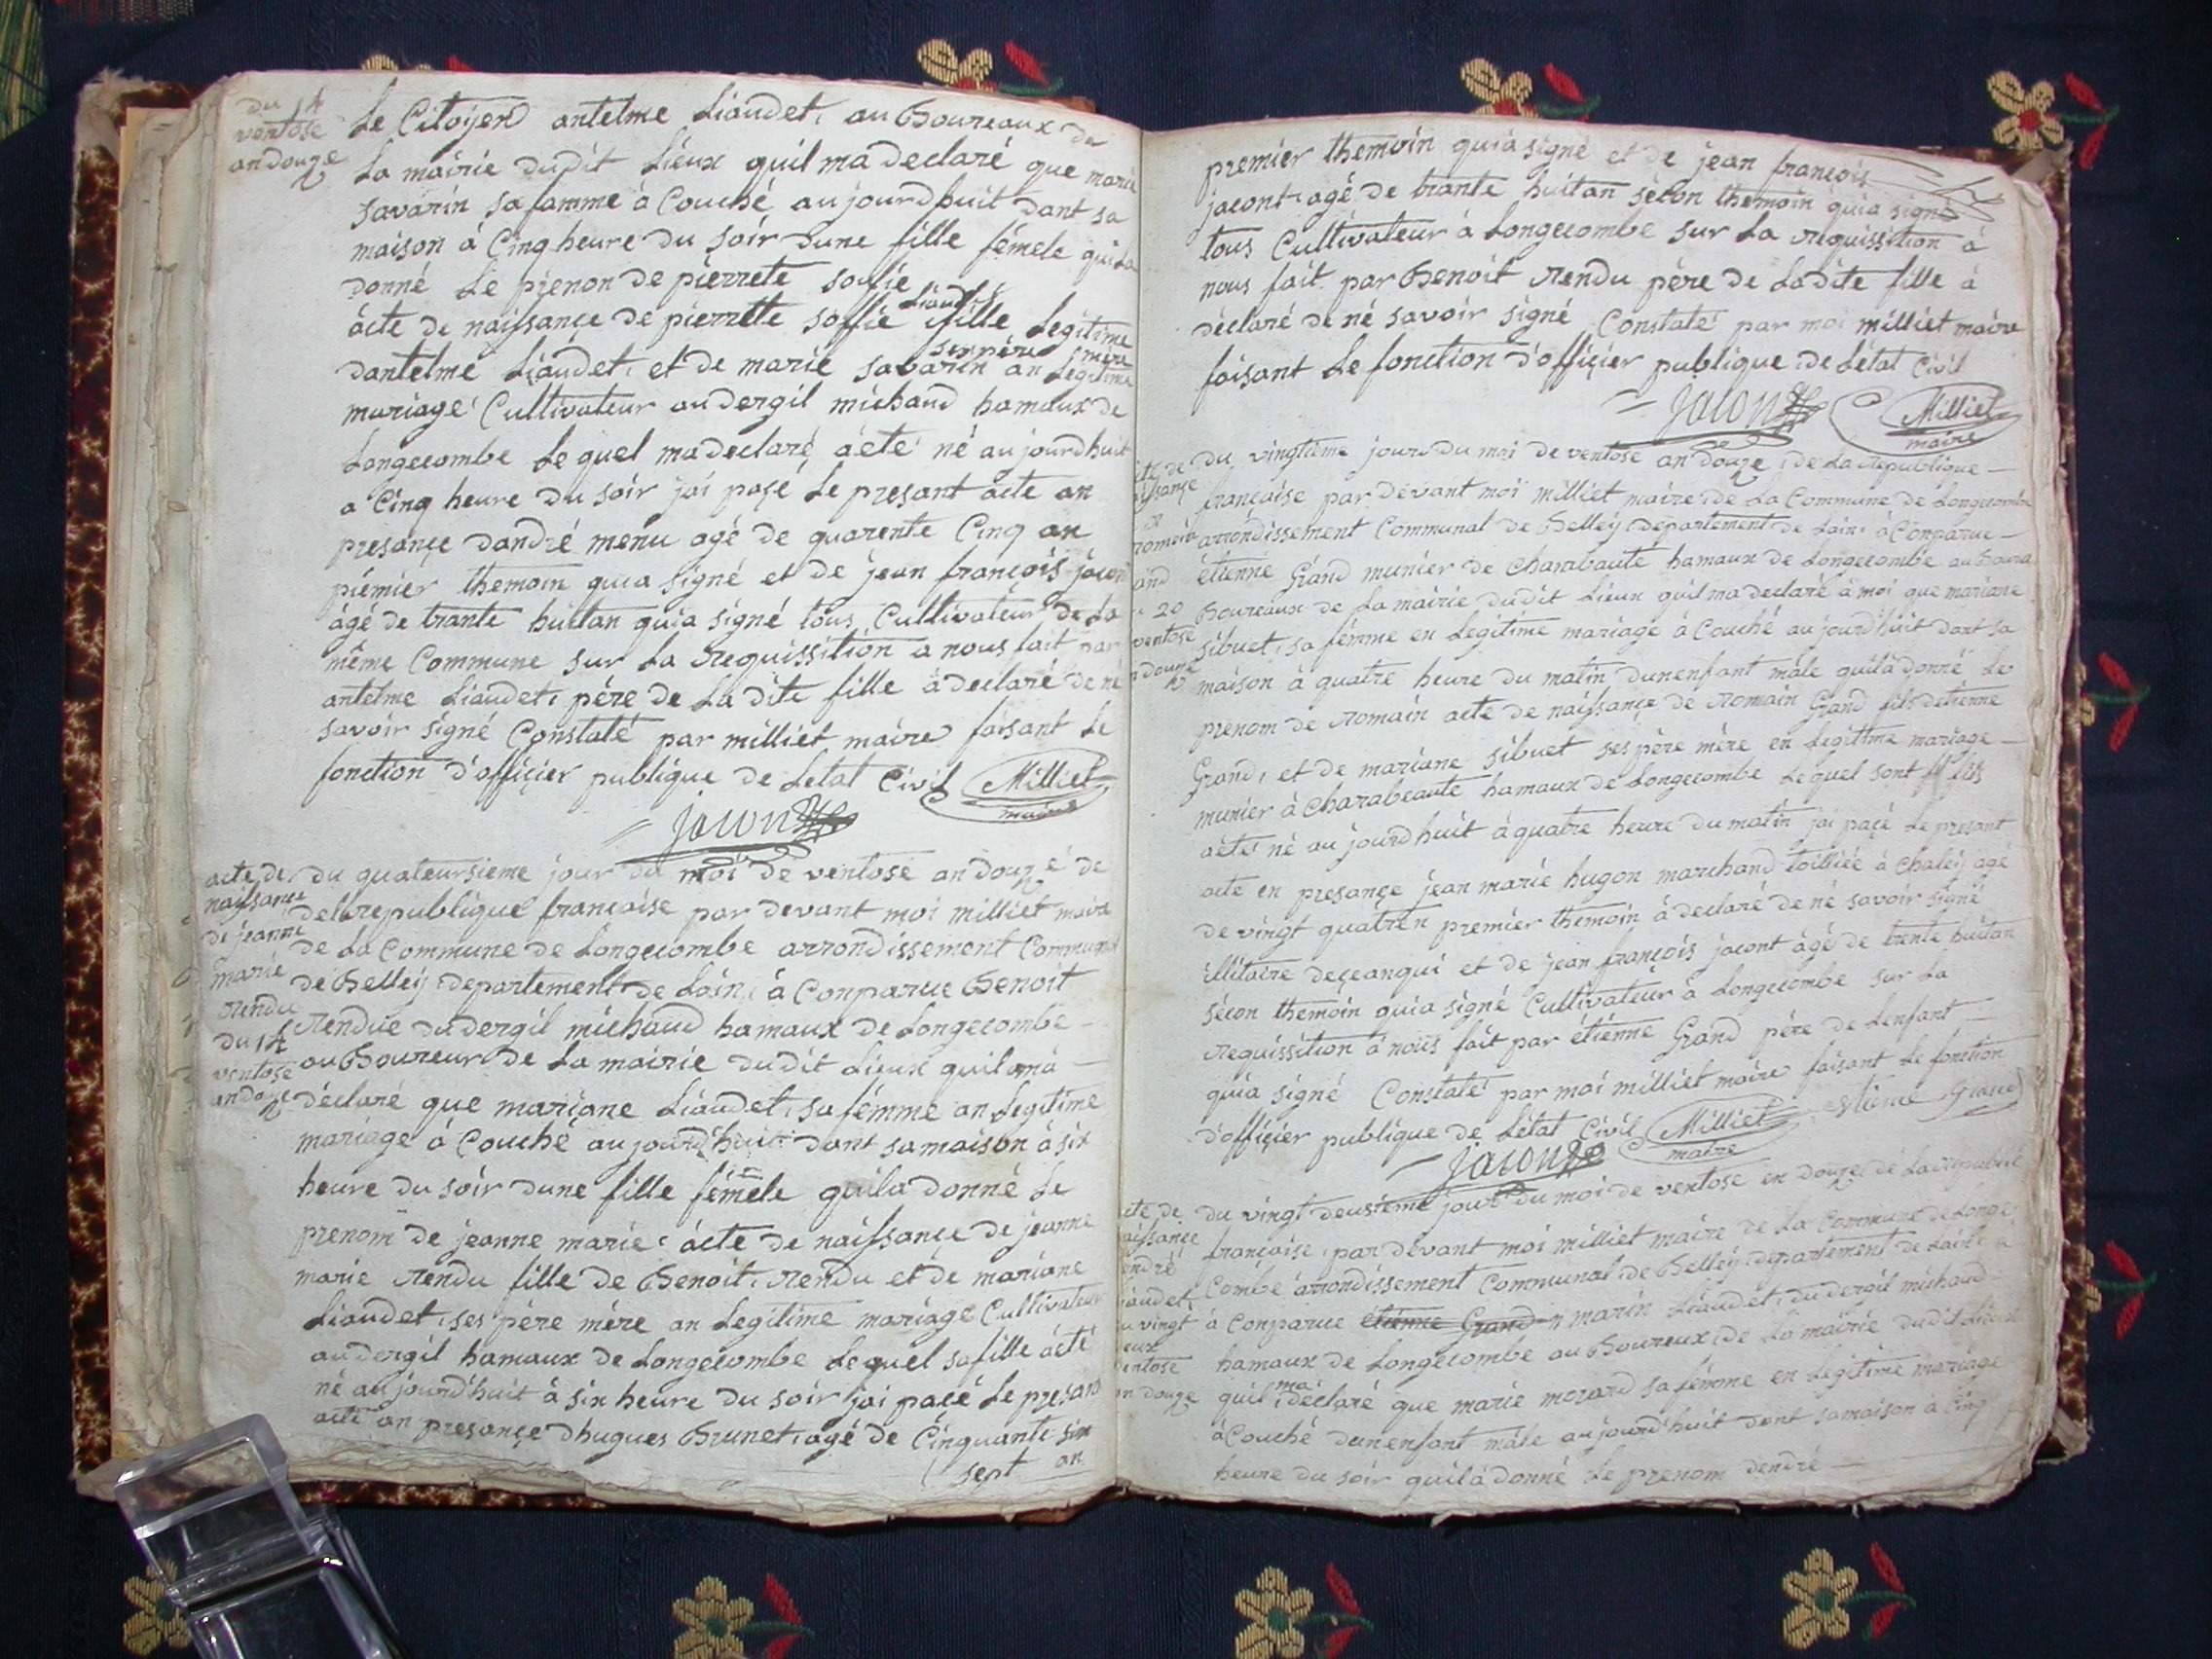 du 14
ventose
an douze
Le Citoyen antelme Liaudet, au Boureaux de
La mairie dudit Lieux quil ma declaré que marie
savarin sa famme à Couché aujourdhuit dant sa
maison à Cinq heure du soir dune fille fémele quila
donné Le prenon de pierrete soffie
àcte de naissançe de pierrette soffie Liaudet fille Legitime
dantelme Liaudet, et de marie savarin ses père mère an Legitime
mariage Cultivateur au dergil michaud hamaux de
Longecombe Lequel ma declaré àeté né aujourdhuit
a Cinq heure du soir jai paçé Le presant acte an
presançe dandré menu agé de quarente Cinq an
piémier themoin quia signé et de jean françois jacon
àgé de trante huitan quia signé tous Cultivateur de La
même Commune sur La Requissition a nous fait par
antelme Liaudet, père de La dite fille à declaré de né
savoir signé Constaté par milliet maire faisant Le
fonction d'offiçier publique de Letat Civil Milliet
maire
jacont
acte de
naissance
de jeanne
marie
Rendu
du 14
ventose
an douze
du quateursieme jour du moi de ventose an douze de
de la republique françoise par devant moi milliet maire
de La Commune de Longecombe arrondissement Communal
de Belley departement de Loin, à Conparue Benoit
Rendue du dergil michaud hamaux de Longecombe —
au Boureur de La mairie dudit Lieux quil ma —
déclaré que mariane Liaudet, sa fémme an Legitime
mariage à Couché aujourd'huit dant sa maison à six
heure du soir dune fille fémele quila donné Le
prenom de jeanne marie acte de naissançe de jeanne
marie Rendu fille de Benoit Rendu et de mariane
Liaudet, ses père mére an Legitime mariage Cultivateur
au dergil hamaux de Longecombe Lequel sa fille àeté
né aujourdhuit à six heure du soir jai paçé Le presant
acte an presançe dhugues Brunet, agé de Cinquante six
sept an
premier themoin quia signé et de jean françois
jacont agé de trante huitan sécon themoin quia signé
tous Cultivateur à Longecombe sur La Requissition à
nous fait par Benoit Rendu père de Ladite fille à
déclaré de né savoir signé Constaté par moi milliet maire
faisant Le fonction d'offiçier publique de Létat Civil
jacont Milliet
maire
20
ventose
du vingtième jour du moi de ventose an douze de La republique —
françaisse par devant moi milliet maire de La Commune de Longecombe
arrondissement Communal de Belley departement de Lain à Conparue —
étienne Grand munier de Charabaute hamaux de Longecombe au Boura
Boureaux de La mairie dudit Lieux quil ma declaré à moi que mariane
sibuet, sa fémme en Legitime mariage à Couché aujourdhuit dont sa
maison à quatre heure du matin dun enfant mâle quila donné Le
prenom de Romain acte de naissançe de Romain Grand fils detienne
Grand, et de mariane sibuet ses père mère en Legitime mariage —
munier à Charabeaute hamaux de Longecombe Lequel sont fils
àeté né aujourdhuit à quatre heure du matin jai paçé Le presant
acte en presançe jean marie hugon marchand toilliée à Chaley agé
de vingt quatren premier themoin à declaré de né savoir signé
illitaire deçeanqui et de jean françois jacont àgé de trente huitan
sécon themoin quia signé Cultivateur à Longecombe sur La
Requissition à nous fait par étienne Grand père de Lenfant —
quia signé Constaté par moi milliet maire faisant Le fonction
d'offiçier publique de Létat Civil Milliet etiene Grand
maire
jacont
du vingt deusième jour du moi de ventose en douze de La republi
françoise par dévant moi milliet maire de La Commune de Longe
Combe arrondissement Communal de Belley departement de Lain à
à Conparue étienne Grand marin Liaudet, du dergil michaud
hamaux de Longecombe au Boureux de La mairie dudit Lieux
quil ma déclaré que marie morard sa fémme en Legitime mariage
à Couché dun enfant mâle aujourd'huit dont sa maison à Cinq
heure du soir quila donné Le prenom dendré —